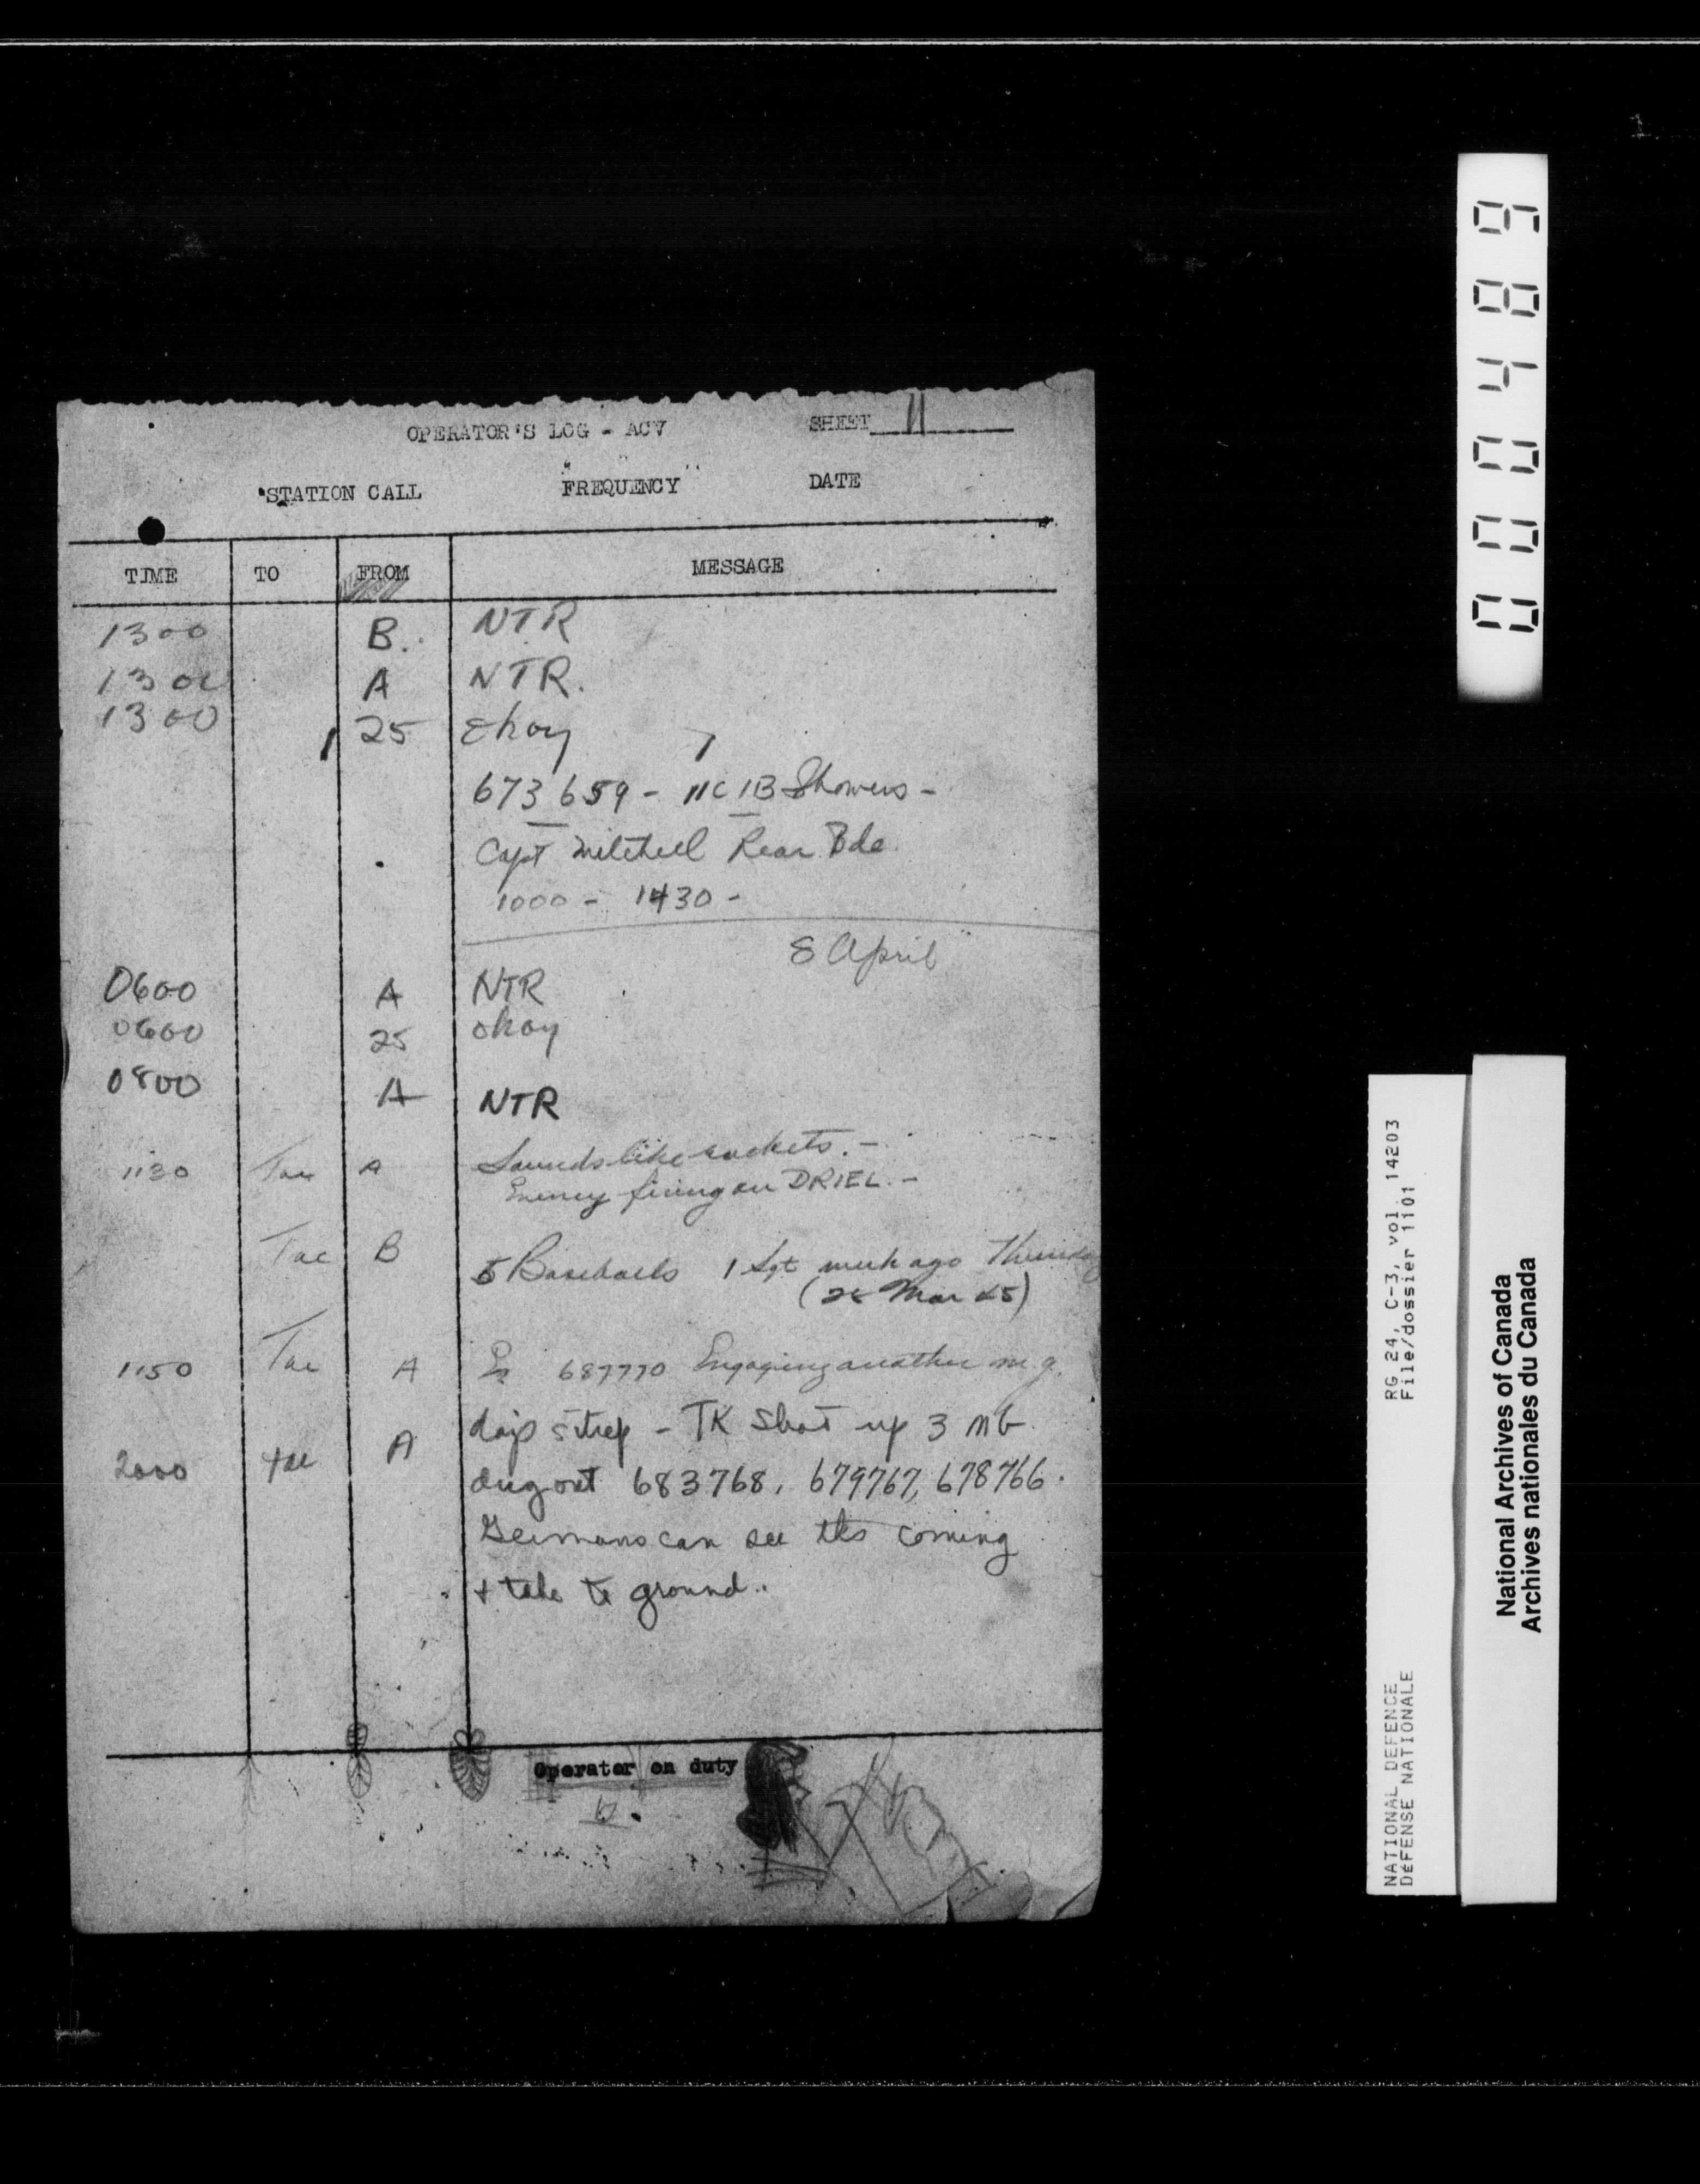 OPERATOR'S LOG - ACV SHEET 11
STATION CALL "FREQUENCY" DATE
TIME TO FROM MESSAGE
1300 B. NTR
1300 A NTR.
1300 25 okay
673659 - 11C1B Showers -
Capt Mitchell Rear Bde
1000 - 1430 -
8 April
0600 A NTR
0600 25 okay
0800 A NTR
1130 Tac A Sounds like rockets. -
Enemy firing on DRIEL. -
Tac B 5 Baseballs 1 Sgt week ago Thursday
Mar 45)
1150 Tac A 687770 Engaging another m.g.
2000 tac A days sitrep - TK Shot up 3 MG
dugout 683768, 679767, 678766.
Germans can see tks coming
+ take to ground..
Operator on duty
000489
RG 24, C-3, vol. 14203
File/dossier 1101
NATIONAL DEFENCE
DÉFENSE NATIONALE
National Archives of Canada
Archives nationales du Canada